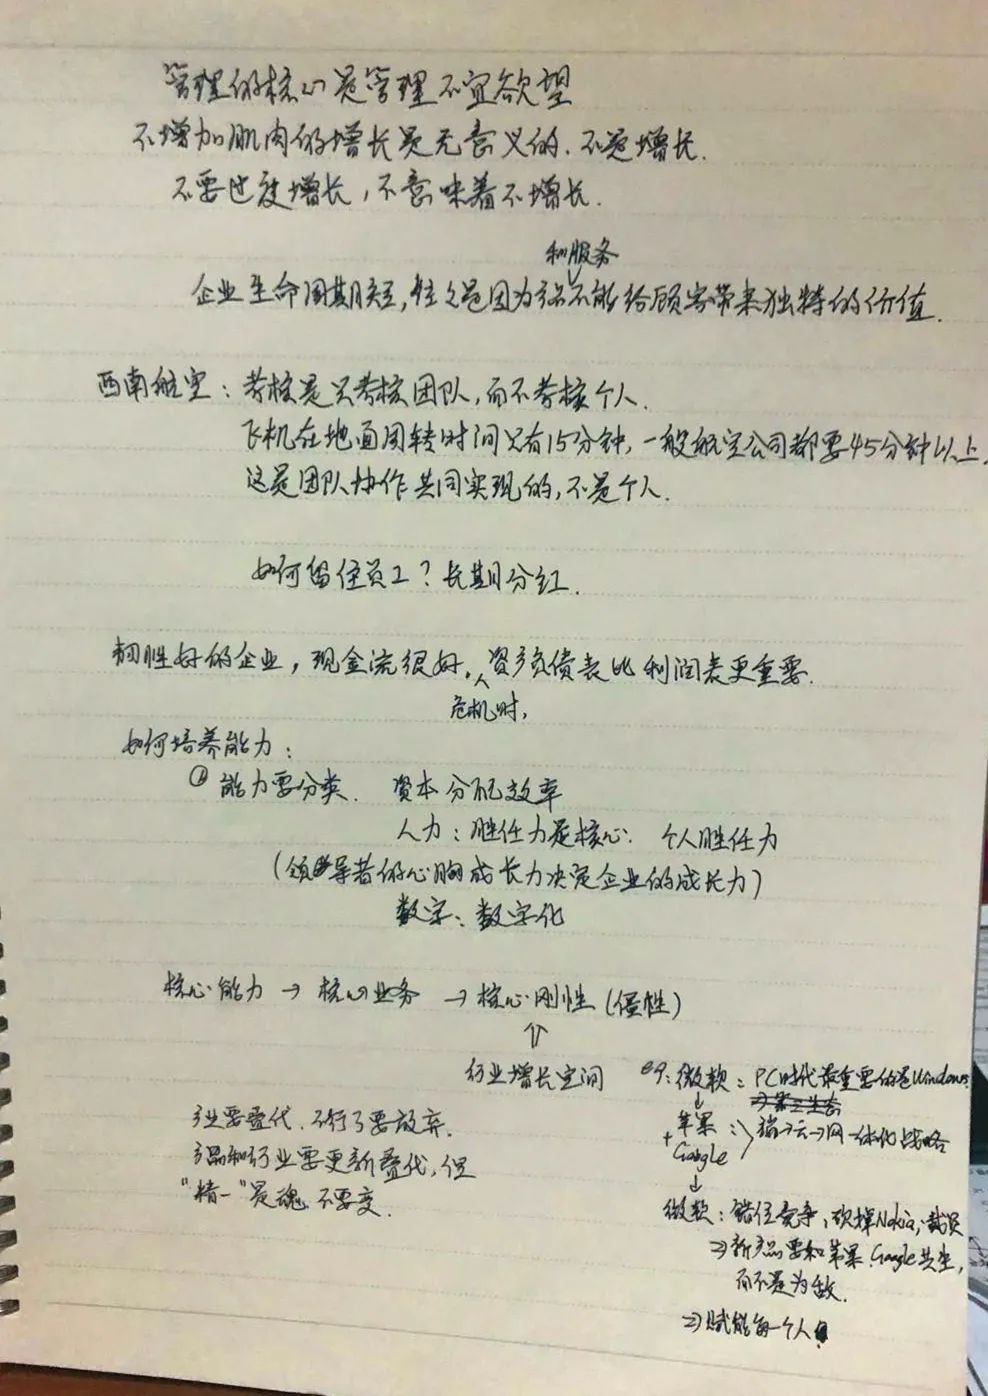 管理的核心是管理不宜欲望
不增加肌肉的增长是无意义的.不是增长.
不要过度增长,不意味着不增长.
和服务
企业生命周期短,往往是因为产品不能给顾客带来独特的价值.
西南航空:考核是只考核团队,而不考核个人.
飞机在地面周转时间只有15分钟,一般航空公司都要45分钟以上.
这是团队协作共同实现的,不是个人.
如何留住员工?长期分红.
韧性好的企业,现金流很好.资产负债表比利润表更重要.
危机时,
如何培养能力:
① 能力要分类. 资本分配效率
人力:胜任力是核心. 个人胜任力
(领导者的心胸成长力决定企业的成长力)
数字:数字化
核心能力→核心业务→核心刚性(僵性)
⇑
行业增长空间
eg:微软:PC时代最重要的是Windows.
↓
苹果
+
Google
:端→云→网一体化战略
↓
产业要叠代.不行了要放弃.
产品和行业要更新叠代,但
"精一"是魂 不要变.
微软:错位竞争,砍掉Nokia,裁员
⇒新产品要和苹果.Google共生,
而不是为敌.
⇒赋能每一个人